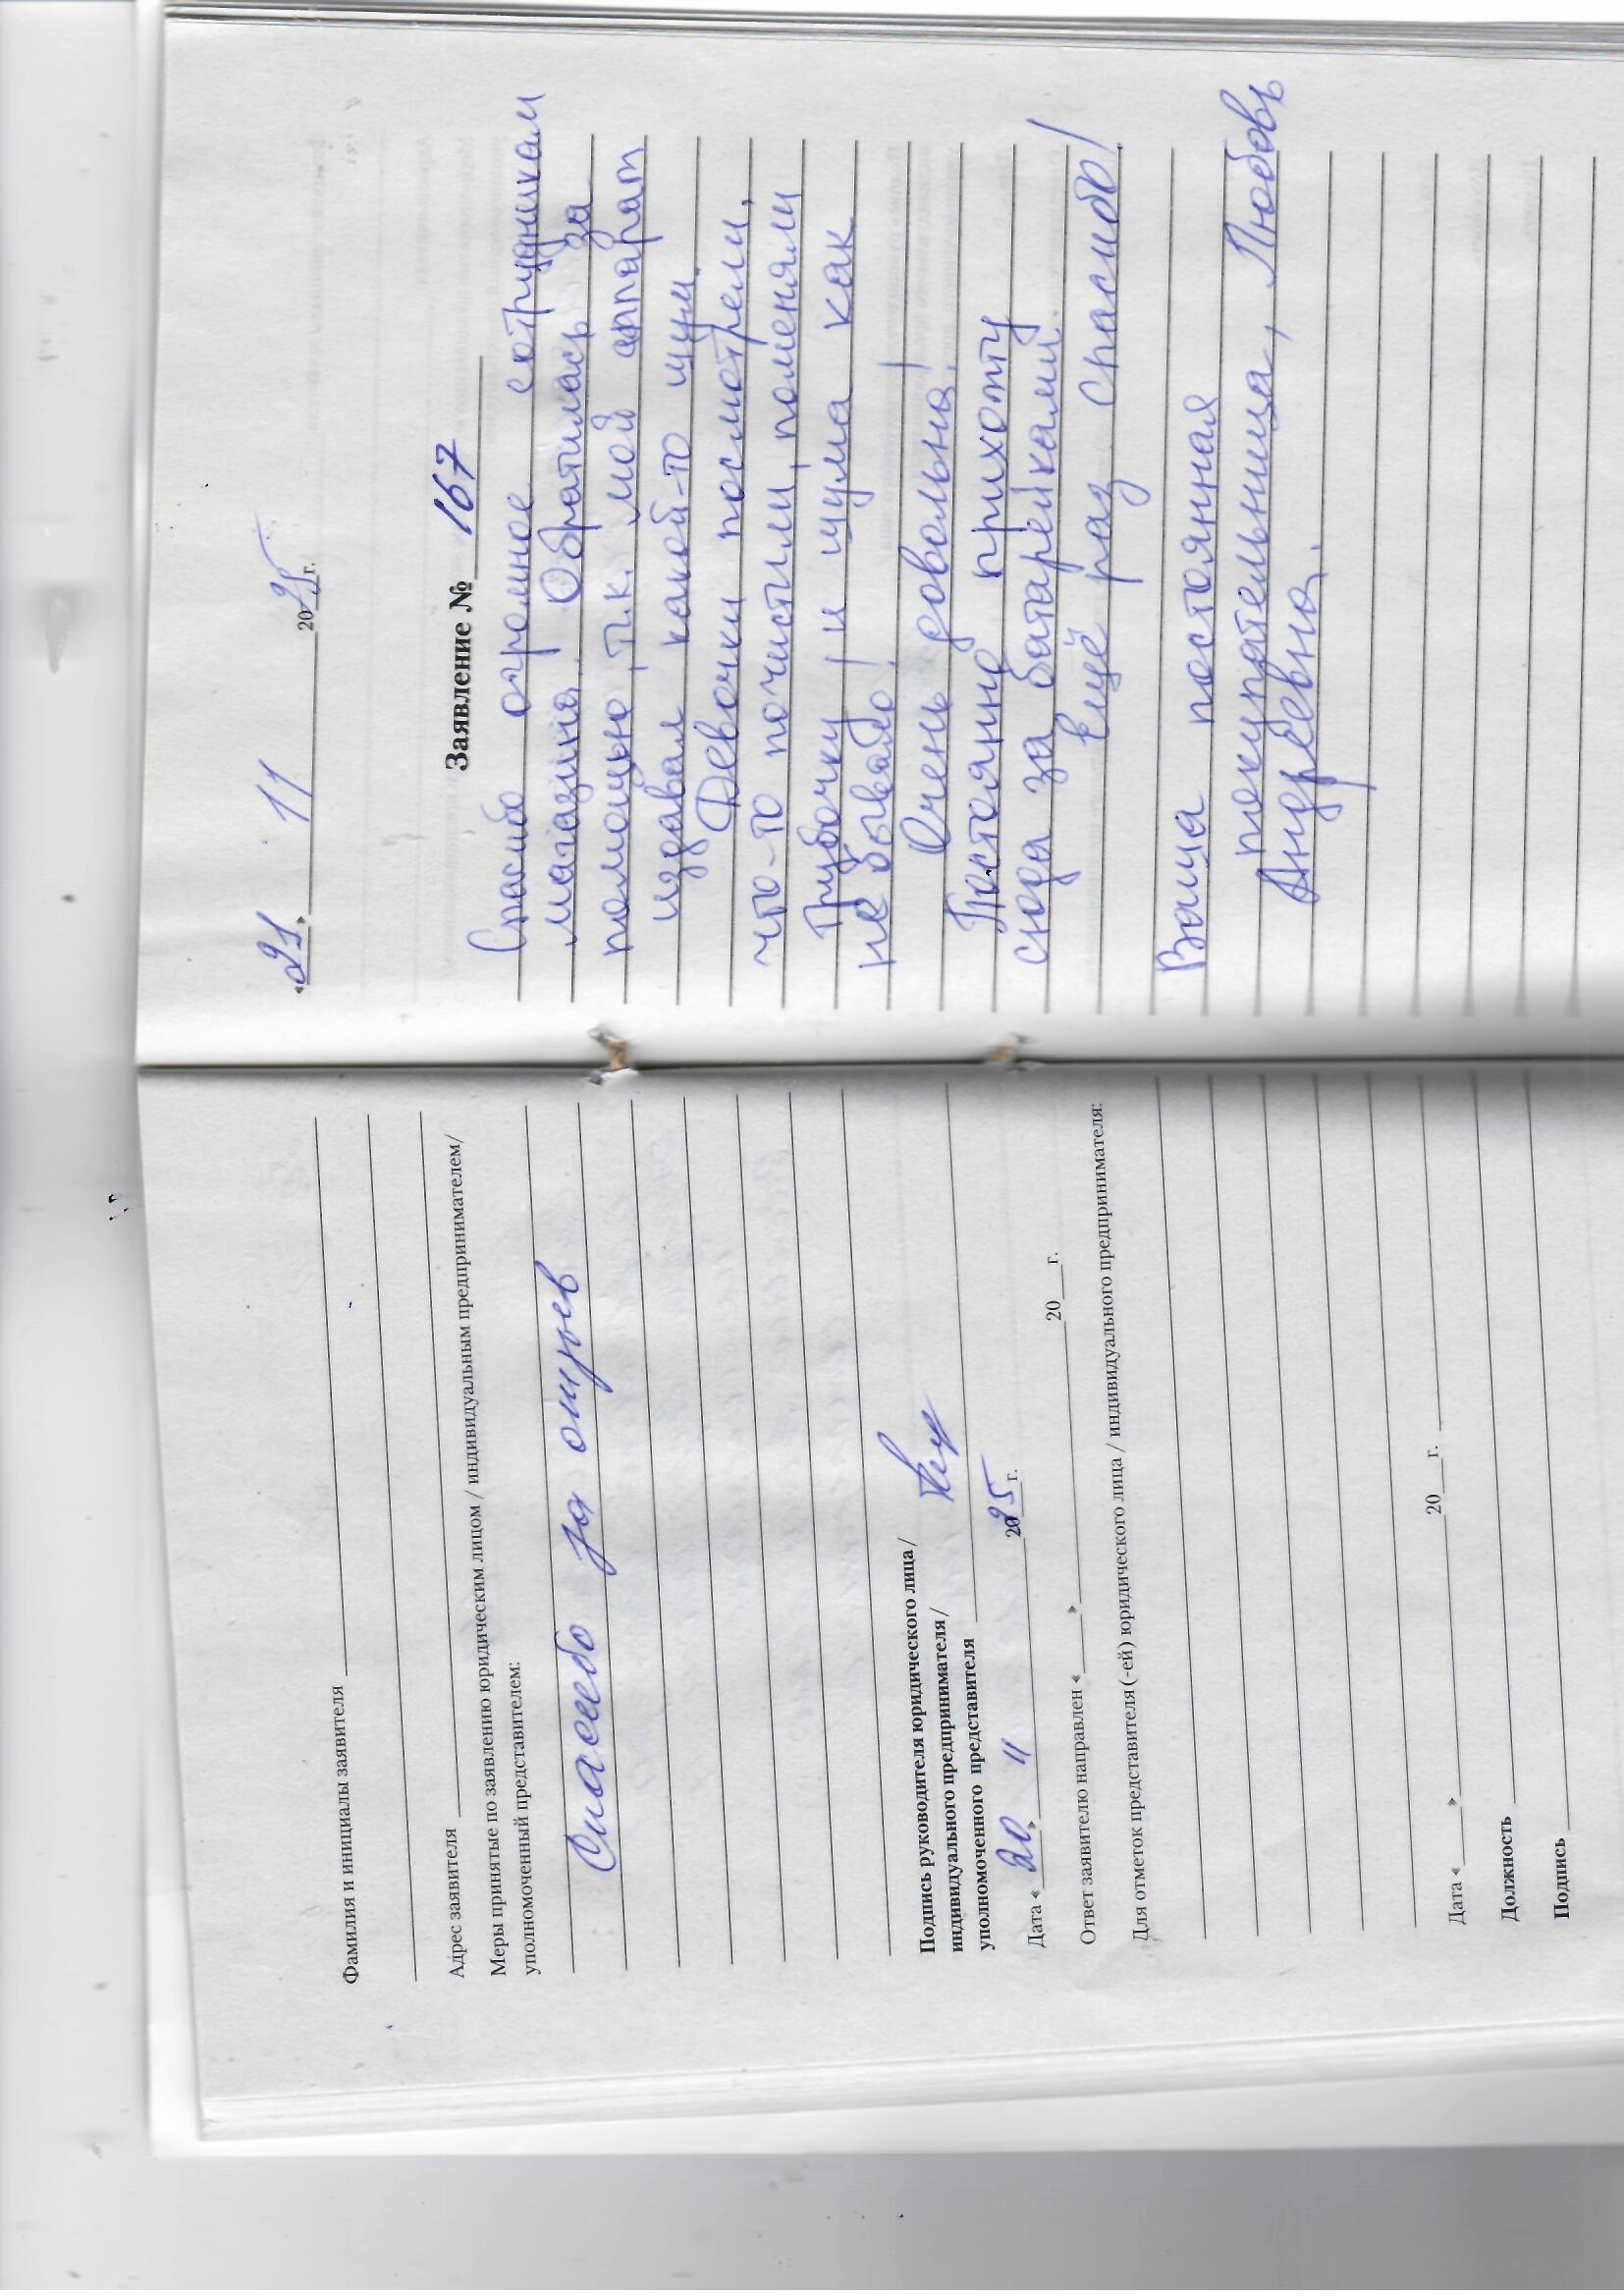 Фамилия и инициалы заявителя
Адрес заявителя
Меры принятые по заявлению юридическим лицом / индивидуальным предпринимателем/
уполномоченный представителем:
Спасибо за отзыв
Подпись руководителя юридического лица/
индивидуального предпринимателя/
уполномоченного представителя
Дата «20» 11 2025 г.
Ответ заявителю направлен « » 20 г.
Для отметок представителя (-ей) юридического лица / индивидуального предпринимателя:
Дата « » 20 г.
Должность
Подпись
«21» 11 2025 г.
Заявление № 167
Спасибо огромное сотрудникам
магазина. Обратилась за
помощью, т.к. мой аппарат
издавал какой-то шум.
Девочки посмотрели,
что-то почистили, поменяли
трубочку и шума как
не бывало!
Очень довольна!
Постоянно прихожу
сюда за батарейками.
Ещё раз спасибо!
Ваша постоянная
покупательница, Любовь
Андреевна.